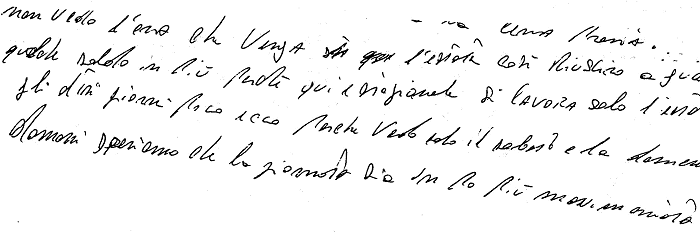 non vedo l'ora che venga l'estate così riuscirò a gua
qualche soldo in più perché qui è stagionale si lavora solo l'esta
gli altri giorni poco ecco perché vedo solo il sabato e la domen
domani speriamo che la giornata sia un po più movimentata